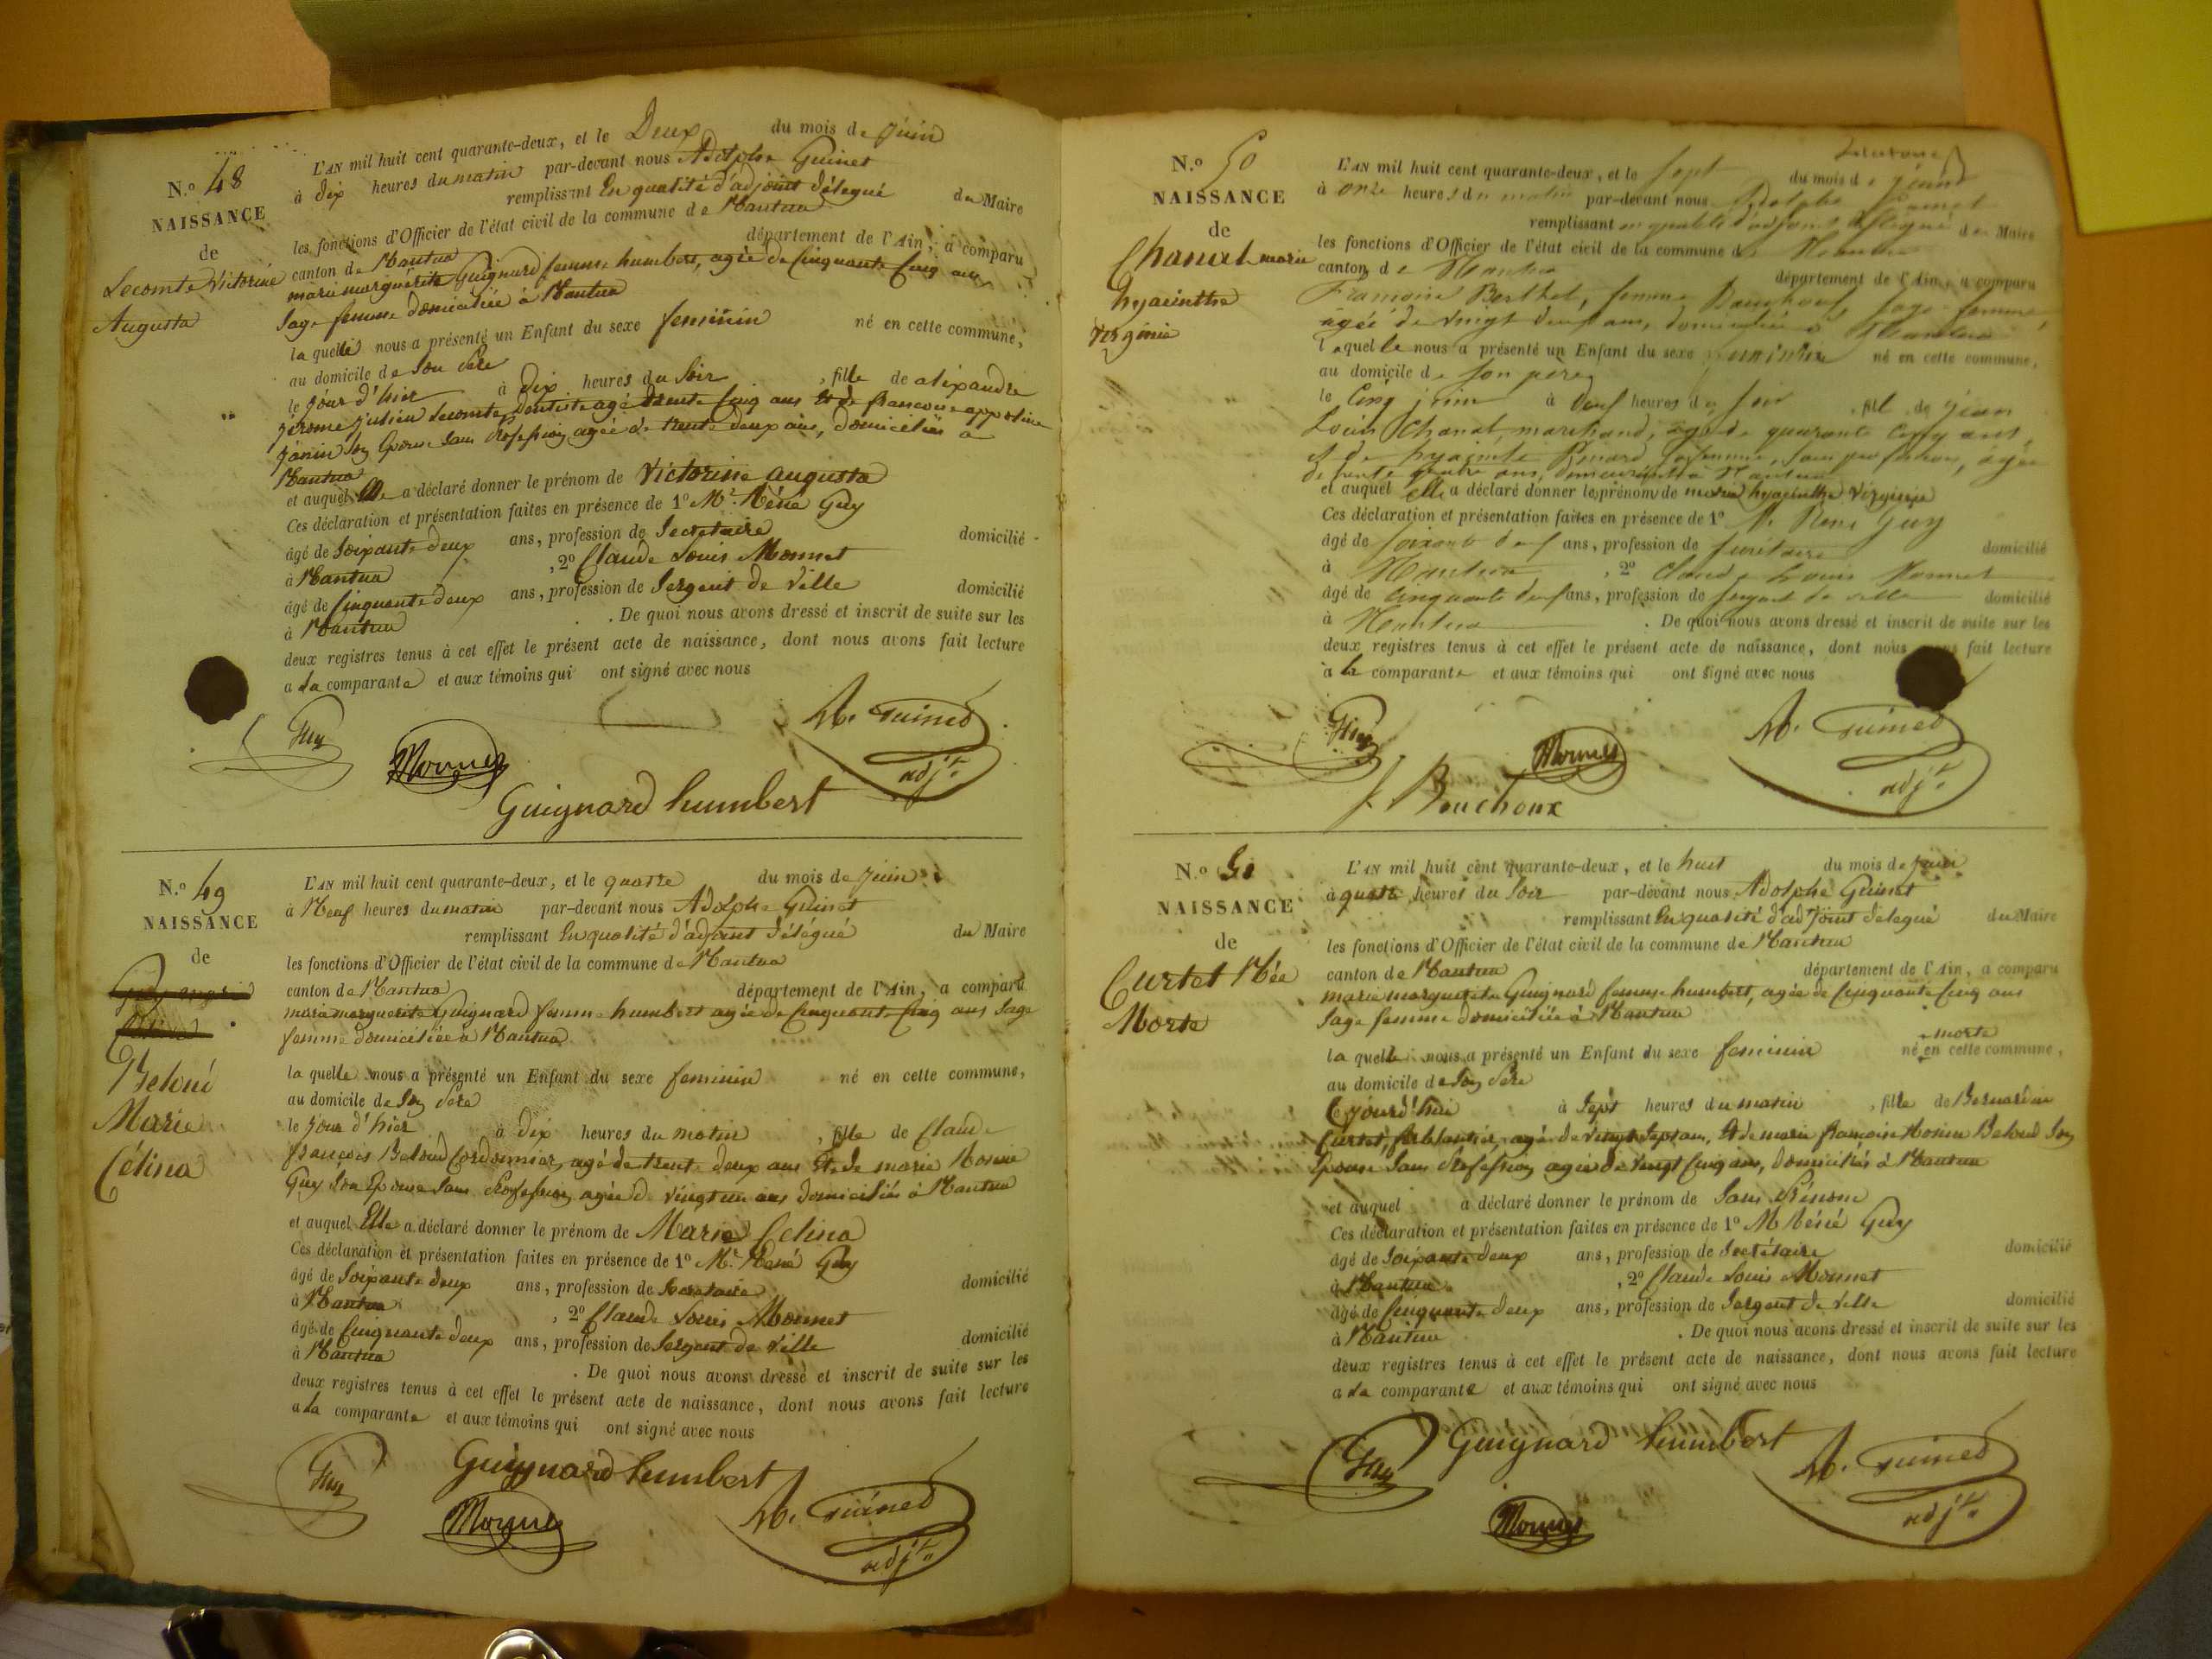 N.o 48
NAISSANCE
de
Lecomte Victorine
Augusta
L'AN mil huit cent quarante-deux, et le Deux du mois de juin
à dix heures du matin par-devant nous Adolphe Guinet
remplissant En qualité d'adjoint délégué du Maire
les fonctions d'Officier de l'état civil de la commune de Nantua
canton de Nantua département de l'Ain, a comparu
marie marguérite Guignard femme humbert, agée de Cinquante Cinq ans
Sage femme domiciliée à Nantua
la quelle nous a présenté un Enfant du sexe feminin né en cette commune,
au domicile de Son Père
le jour d'hier à dix heures du Soir, fille de aléxandre
jérome julien Lecomte, Dentiste agé de trente Cinq ans Et de francoise appoline
janin Son Epouse Sans Profession agée de trente deux ans, domiciliés à
Nantua
et auquel Elle a déclaré donner le prénom de Victorine augusta
Ces déclaration et présentation faites en présence de 1º Mr. Réné Guy
âgé de Soixante deux ans, profession de Secretaire domicilié
à Nantua, 2º Claude Louis Monnet
âgé de Cinquante deux ans, profession de Sergent de Ville domicilié
à Nantua. De quoi nous avons dressé et inscrit de suite sur les
deux registres tenus à cet effet le présent acte de naissance, dont nous avons fait lecture
a La comparante et aux témoins qui ont signé avec nous
Guy
Monnet
A. Guinet
adjt.
Guignard humbert
N.o 49
NAISSANCE
de
Beloud
Marie
Célina
L'AN mil huit cent quarante-deux, et le quatre du mois de juin
à Neuf heures du matin par-devant nous Adolphe Guinet
remplissant En qualité d'adjoint délegué du Maire
les fonctions d'Officier de l'état civil de la commune de Nantua
canton de Nantua département de l'Ain, a comparu
marie marguerite Guignard femme humbert agée de Cinquante Cinq ans Sage
femme domiciliée à Nantua
la quelle nous a présenté un Enfant du sexe feminin né en cette commune,
au domicile de Son Père
le jour d'hier à dix heures du matin, fille de Claude
françois Beloud Cordonnier, agé de trente deux ans Et de marie
Guy Son Epouse Sans Profession, agée de vingt un ans domiciliés à Nantua
et auquel Elle a déclaré donner le prénom de Marie Celina
Ces déclaration et présentation faites en présence de 1º Mr. Réné Guy
âgé de Soixante deux ans, profession de Secretaire domicilié
à Nantua, 2º Claude Louis Monnet
âgé de Cinquante deux ans, profession de Sergent de Ville domicilié
à Nantua. De quoi nous avons dressé et inscrit de suite sur les
deux registres tenus à cet effet le présent acte de naissance, dont nous avons fait lecture
a La comparante et aux témoins qui ont signé avec nous
Guy
Guignard humbert
Monnet
A. Guinet
adjt.
N.o 50
NAISSANCE
de
Chanal marie
hyacinthe
Virginie
L'AN mil huit cent quarante-deux, et le Sept du mois de juin
à onze heures du matin par-devant nous Adolphe Guinet
remplissant en qualité d'adjoint délégué du Maire
les fonctions d'Officier de l'état civil de la commune de Nantua
canton de Nantua département de l'Ain, a comparu
Francoise Berthet, femme Bouchoux, Sage femme
agée de vingt neuf ans, domiciliée à Nantua
laquelle nous a présenté un Enfant du sexe feminin né en cette commune,
au domicile de Son pere
le Cinq juin à neuf heures du Soir, fille de jean
Louis Chanal, marchand, agé de quarante Cinq ans,
et de hyacinte, Sa femme, Sans profession, agée
de trente quatre ans, demeurants à Nantua
et auquel Elle a déclaré donner les prénoms de marie hyacinthe Virginie
Ces déclaration et présentation faites en présence de 1º M. Réné Guy
âgé de Soixante deux ans, profession de Secrétaire domicilié
à Nantua, 2º Claude Louis Monnet
âgé de Cinquante deux ans, profession de Sergent de ville domicilié
à Nantua. De quoi nous avons dressé et inscrit de suite sur les
deux registres tenus à cet effet le présent acte de naissance, dont nous fait lecture
à la comparante et aux témoins qui ont signé avec nous
Guy
Monnet
A. Guinet
adjt.
f. Bouchoux
N.o 51
NAISSANCE
de
Curtet Née
Morte
L'AN mil huit cent quarante-deux, et le huit du mois de juin
à quatre heures du Soir par-devant nous Adolphe Guinet
remplissant En qualité d'adjoint délegué du Maire
les fonctions d'Officier de l'état civil de la commune de Nantua
canton de Nantua département de l'Ain, a comparu
marie marguerite Guignard femme humbert, agée de Cinquante Cinq ans
Sage femme domiciliée à Nantua
morte
la quelle nous a présenté un Enfant du sexe feminin né en cette commune,
au domicile de Son Père
Cejourd'hui à Sept heures du matin, fille de Bernardin
Curtet, ferblantier, agé de vingt Sept ans, Et de marie françoise Beloud Son
Epouse Sans Profession agée de vingt Cinq ans, domiciliés à Nantua
et auquel a déclaré donner le prénom de Sans Prénom
Ces déclaration et présentation faites en présence de 1º M Réné Guy
âgé de Soixante deux ans, profession de Secrétaire domicilié
à Nantua, 2º Claude Louis Monnet
âgé de Cinquante deux ans, profession de Sergent de Ville domicilié
à Nantua. De quoi nous avons dressé et inscrit de suite sur les
deux registres tenus à cet effet le présent acte de naissance, dont nous avons fait lecture
a La comparante et aux témoins qui ont signé avec nous
Guy
Guignard humbert
Monnet
A. Guinet
adjt.